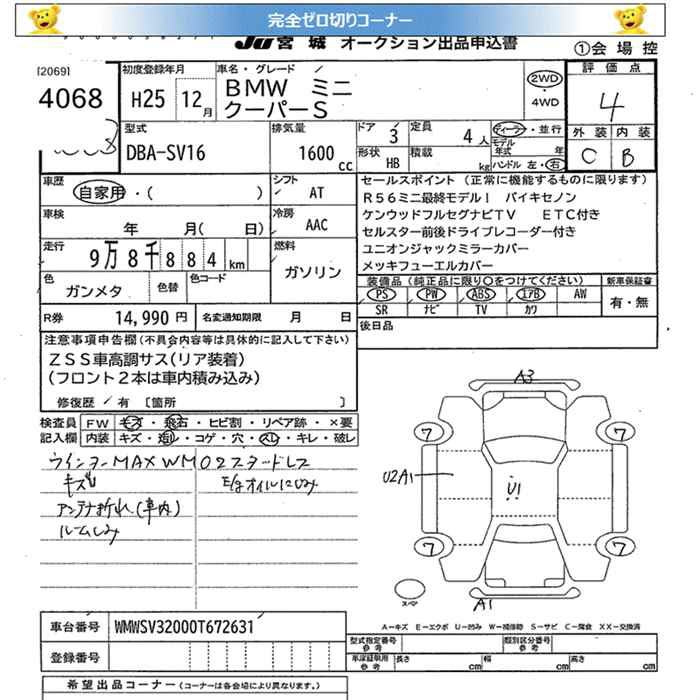 完全ゼロ切りコーナー
JU宮城 オークション出品申込書
①会場控
[2069]
4068
初度登録年月
H25 12月
車名・グレード
BMW ミニ
クーパーS
2WD
・
4WD
評価点
4
外装 内装
C B
型式
DBA-SV16
排気量
1600 cc
ドア 3
定員 4人
形状 HB
積載 kg
ディーラー・並行
モデル年式 年
ハンドル 左・右
車歴
自家用・( )
シフト
AT
車検
年 月( 日)
冷房
AAC
走行
9万8千884km
燃料
ガソリン
色
ガンメタ
色替
色コード
R券 14,990円
名変通知期限 月 日
セールスポイント (正常に機能するものに限ります)
R56ミニ最終モデル! バイキセノン
ケンウッドフルセグナビTV ETC付き
セルスター前後ドライブレコーダー付き
ユニオンジャックミラーカバー
メッキフューエルカバー
装備品(純正品に限り〇をつけてください)
新車保証書
PS PW ABS エアB AW
SR ナビ TV カワ
有・無
後日品
注意事項申告欄(不具合内容等は具体的に記入して下さい)
ZSS車高調サス(リア装着)
(フロント2本は車内積み込み)
修復歴/有〔箇所 〕
検査員記入欄
FW キズ・飛石・ヒビ割・リペア跡・×要
内装 キズ・汚れ・コゲ・穴・スレ・キレ・破レ
ウインターMAXWM02スタッドレス
キズ
E/gオイルにじみ
アンテナ折れ(車内)
ルームしみ
A3
7 7
U2A1
U1
7 7
スペア
A1
A-キズ E-エクボ U-凹み W-補修跡 S-サビ C-腐食 XX-交換済
車台番号 WMWSV32000T672631
登録番号
型式指定番号 参考
類別区分番号 参考
車庫証明用 参考
長さ cm 幅 cm 高さ cm
希望出品コーナー(コーナーは各会場により異なります。)